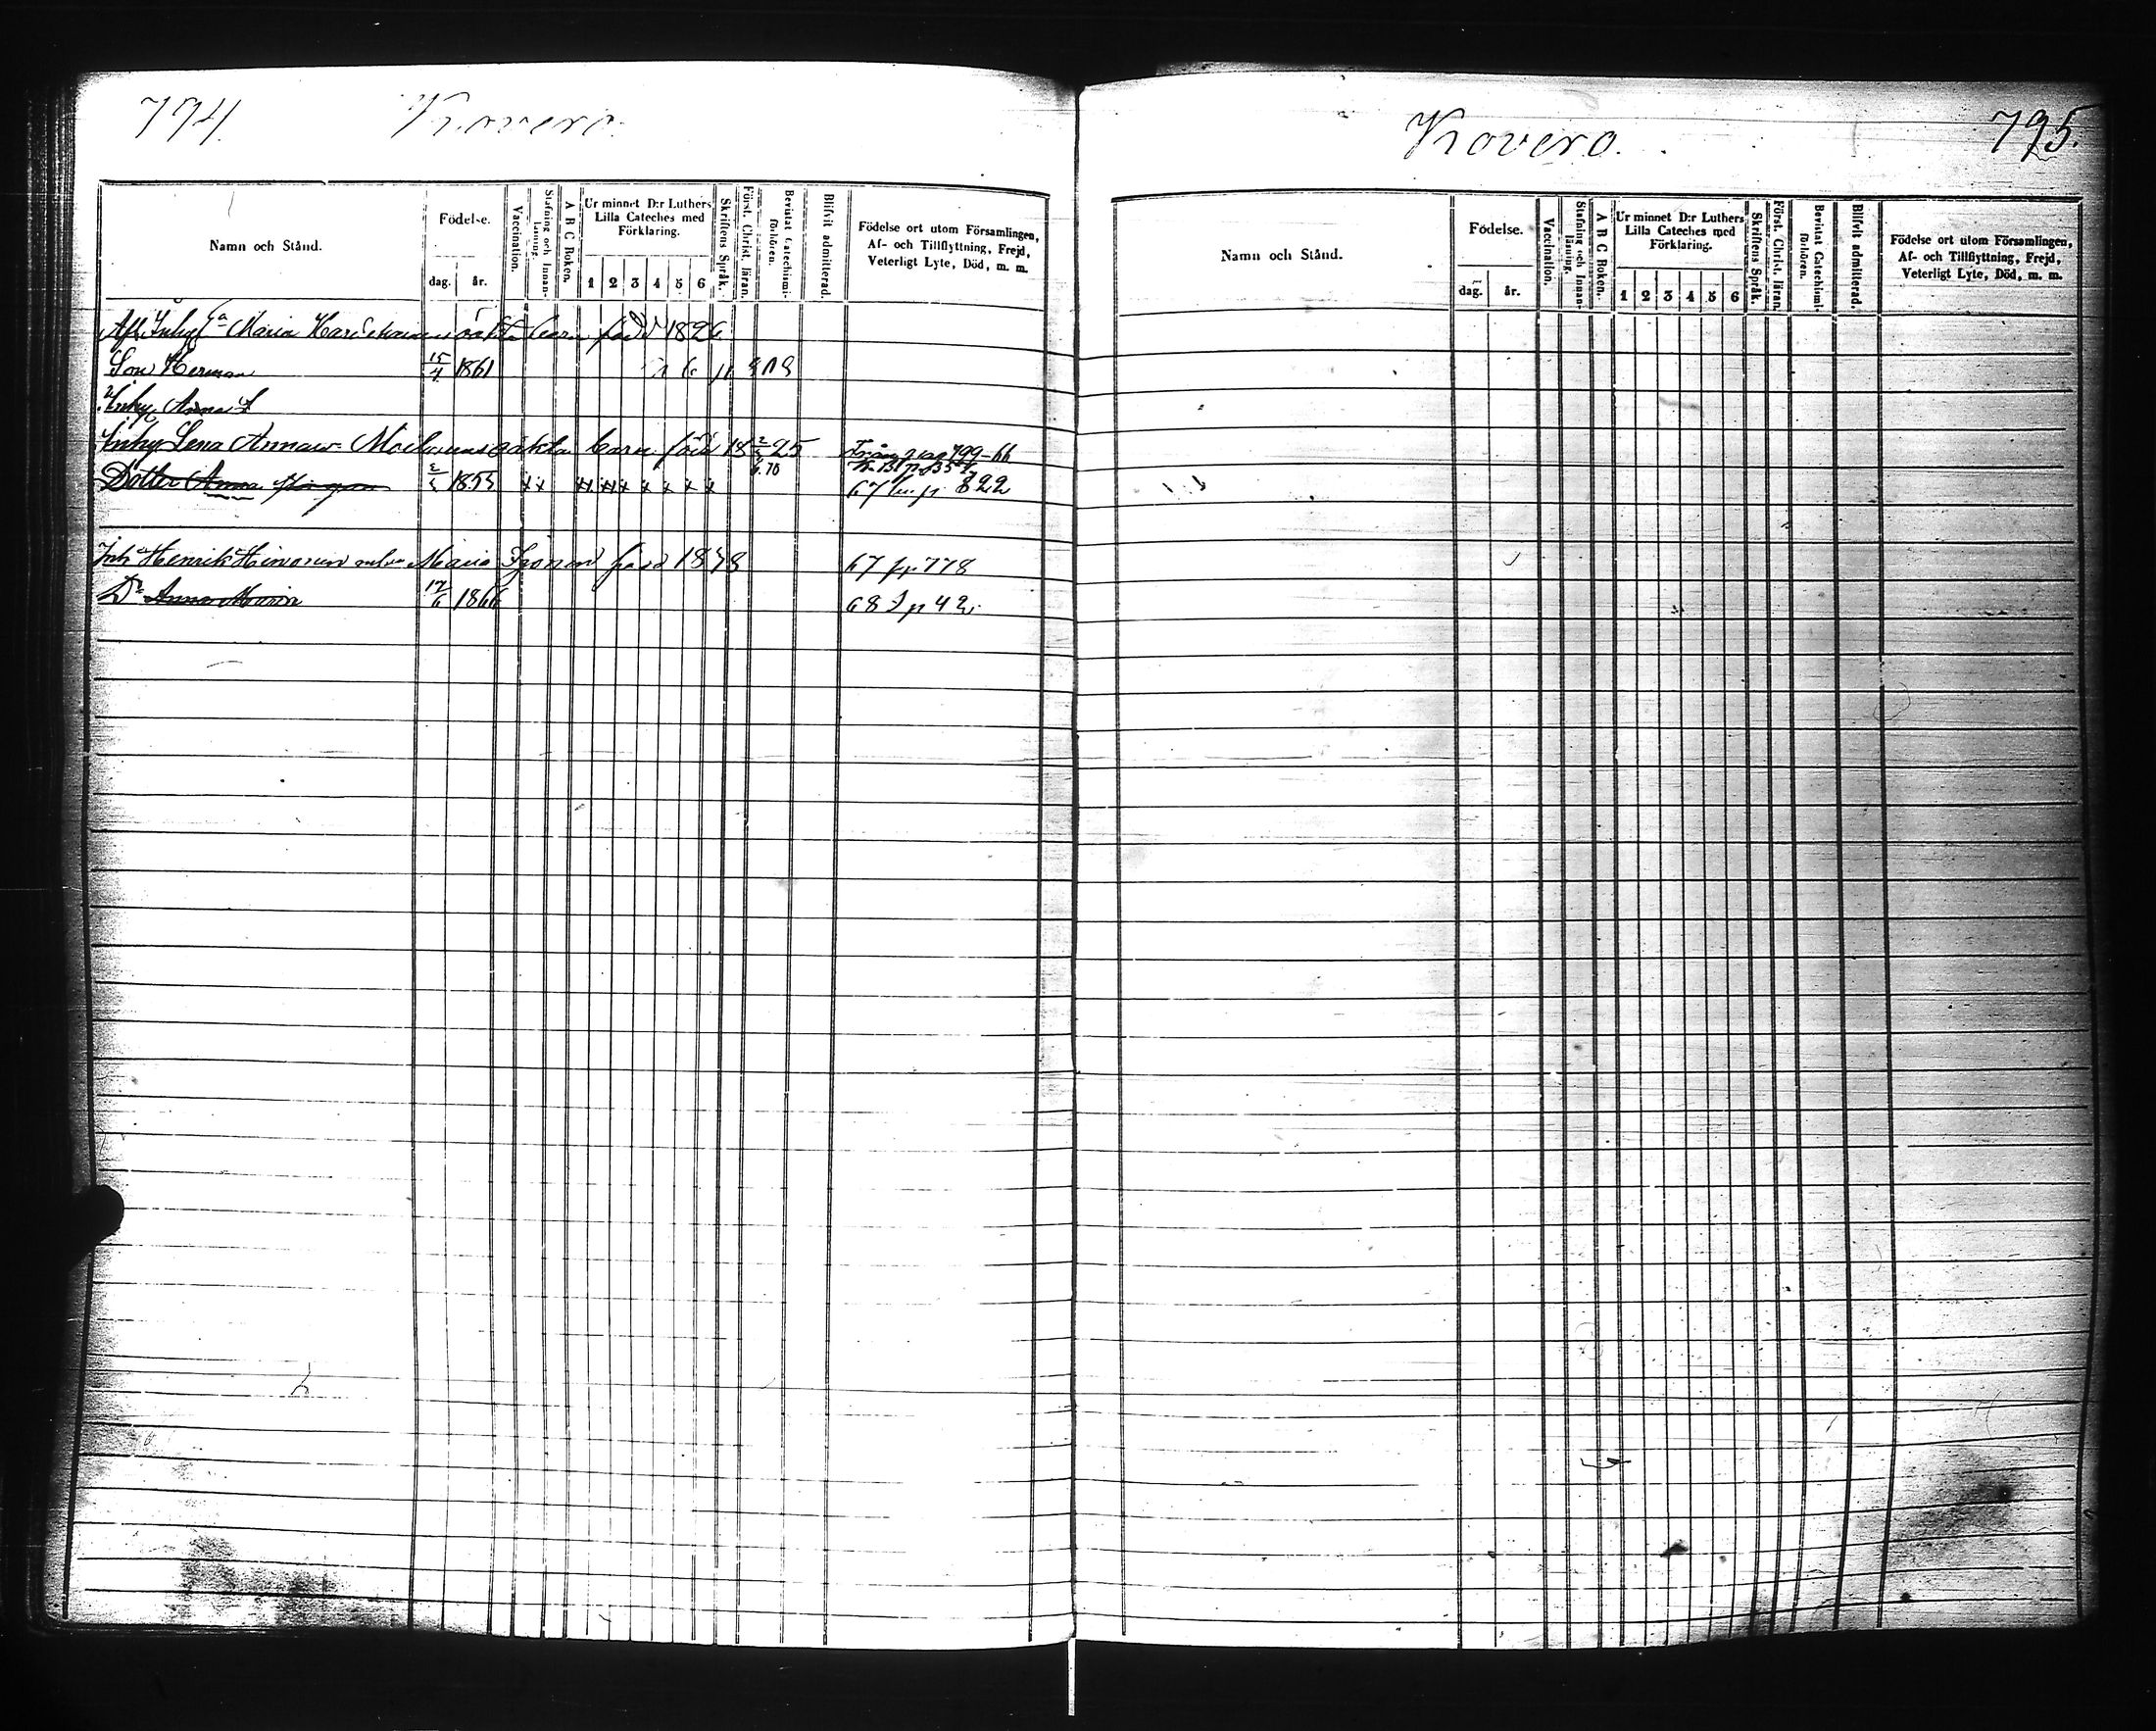 794. Kovero.
Namn och Stånd.
Födelse.
dag. år.
Vaccination.
Stafning och Innanläsning.
A B C Boken.
Ur minnet D:r Luthers Lilla Cateches med Förklaring.
1 2 3 4 5 6
Skriftens Språk.
Först. Christ. läran.
Bevistat Catechismiförhören.
Blifvit admitterad.
Födelse ort utom Församlingen, Af- och Tillflyttning, Frejd, Veterligt Lyte, Död, m. m.
Maria oäkta barn född 1826
Son Herman 15/4 1861
Inhy Anna
Inhy Lena oäkta barn född 18 2/3 25 Från pag 799-66
Dotter Anna 1855 × × × × × × × × × 67 p 822
Inh Henrik Hirvonen Maria född 1838 67 p 778
Dr Anna Maria 17/6 1866 68 p 42
Kovero. 795.
Namn och Stånd.
Födelse.
dag. år.
Vaccination.
Stafning och Innanläsning.
A B C Boken.
Ur minnet D:r Luthers Lilla Cateches med Förklaring.
1 2 3 4 5 6
Skriftens Språk.
Först. Christ. läran.
Bevistat Catechismiförhören.
Blifvit admitterad.
Födelse ort utom Församlingen, Af- och Tillflyttning, Frejd, Veterligt Lyte, Död, m. m.